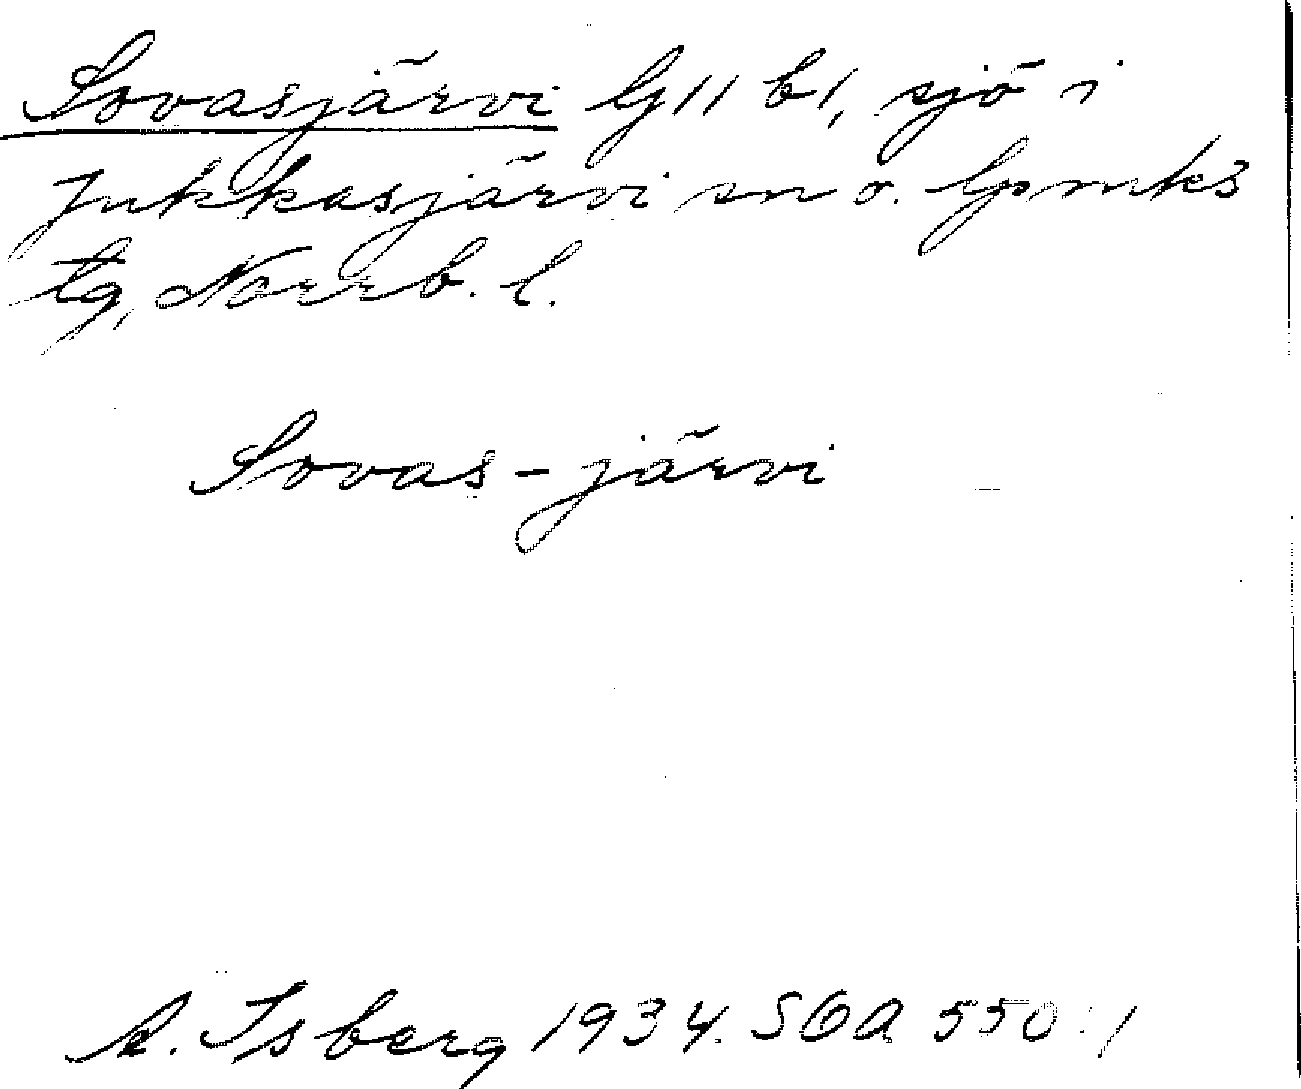 Sovasjärvi G 11 b 1, sjö i
Jukkasjärvi sn o. lpmks
tg, Norrb. l.
Sovas-järvi
A. Isberg 1934. SOA 550:1